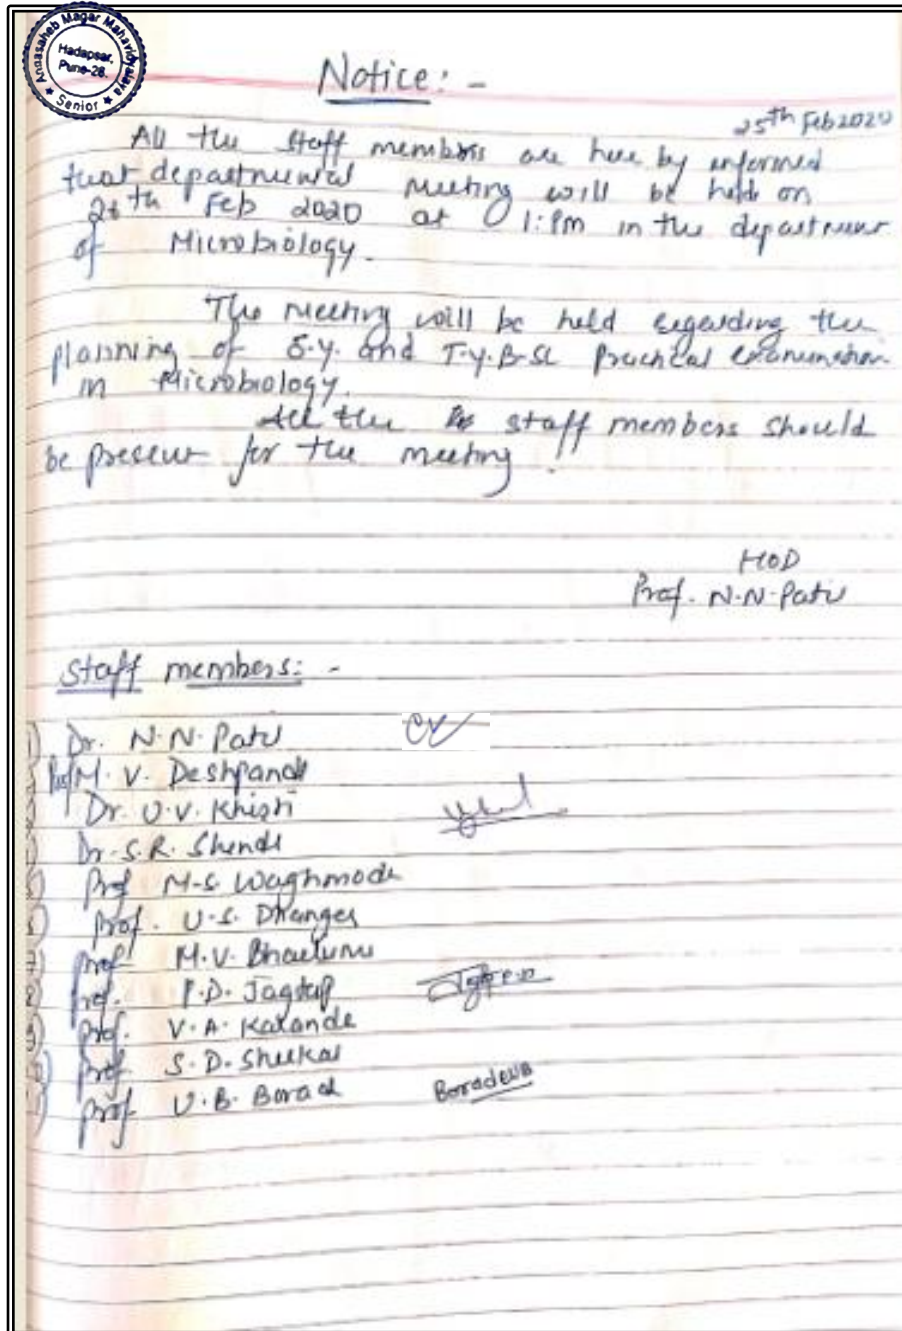 Annasaheb Magar Mahavidyalaya
Hadapsar,
Pune-28.
★ Senior ★
Notice: -
25th Feb 2020
All the staff members are here by informed
that departmental meeting will be held on
Feb 2020 at 1:PM in the department
of Microbiology.
The meeting will be held regarding the
planning of S.Y. and T.Y.B.Sc Practical examination
in Microbiology.
All the staff members should
be present for the meeting !
HOD
Prof. N.N. Patil
Staff members: -
1) Dr. N.N. Patil
Prof M. V. Deshpande
Dr. U.V. Khisti
Dr. S.R. Shende
Prof M.S. Waghmode
Prof. U.S. Dhanger
7) Prof M.V.
8) Prof. P.D. Jagtap
9) Prof. V.A. Karande
Prof S.D.
Prof U.B. Borade